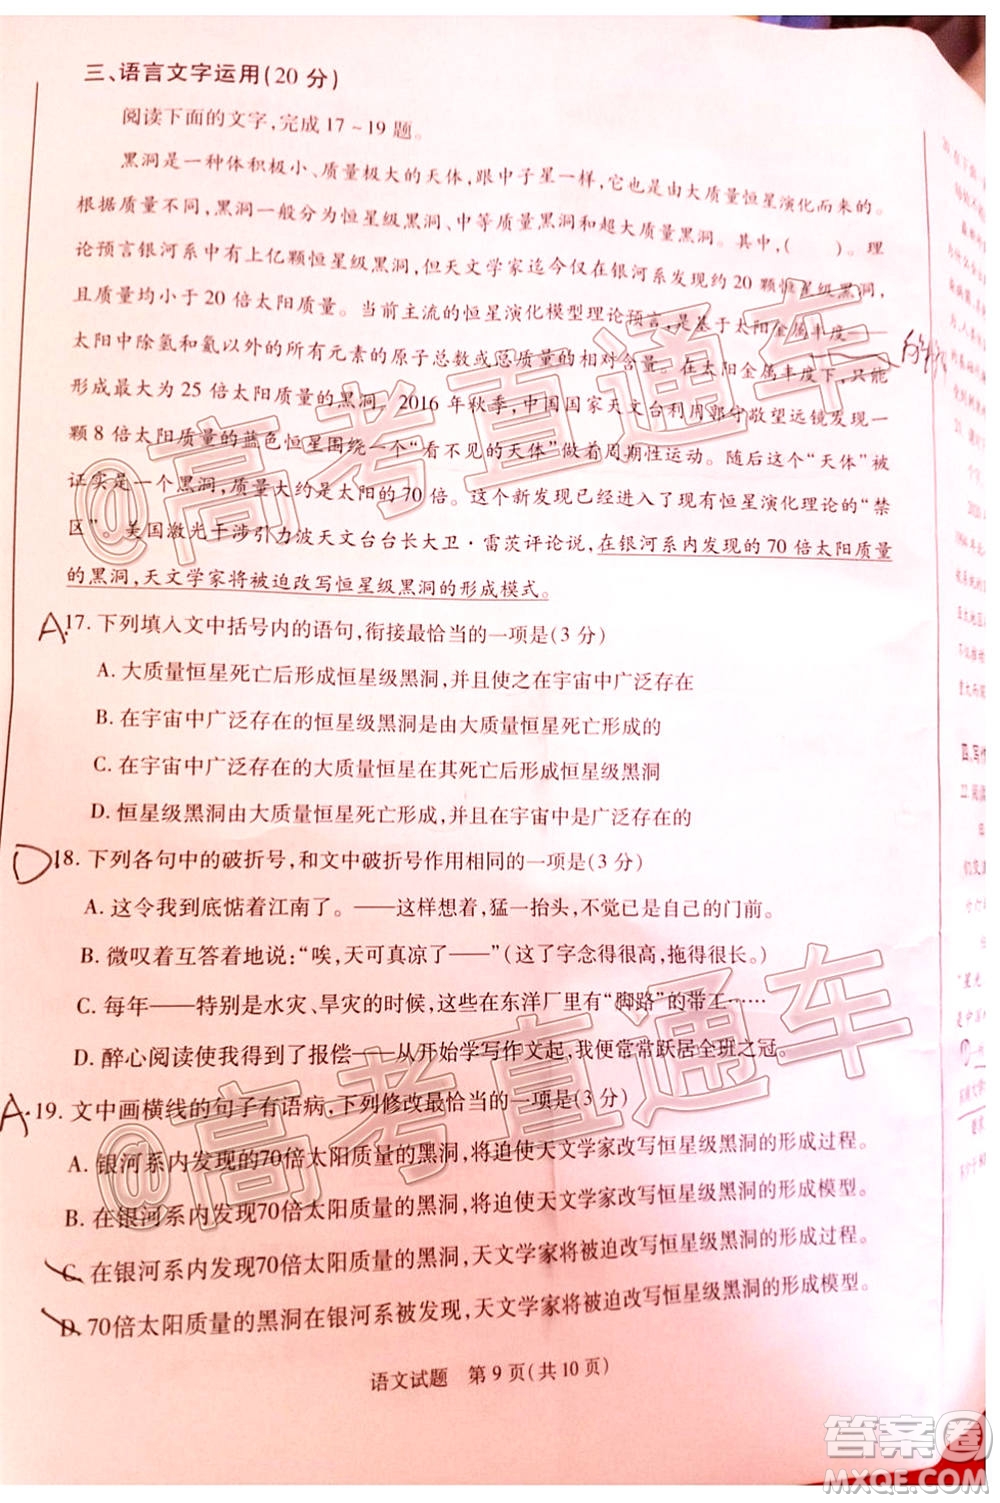 三、语言文字运用(20 分)
阅读下面的文字,完成 17～19 题。
黑洞是一种体积极小、质量极大的天体,跟中子星一样,也是由大质量恒星演化而来的。
根据质量不同,黑洞一般分为恒星级黑洞、中等质量黑洞和超大质量黑洞。其中,(　　)。理
论预言银河系中有上亿颗恒星级黑洞,但天文学家迄今仅在银河系发现约 20 颗恒星级黑洞,
且质量均小于 20 倍太阳质量。当前主流的恒星演化模型理论预言,是基于太阳金属丰度——
太阳中除氢和氦以外的所有元素的原子总数或总质量的相对含量。在太阳金属丰度下,只能
形成最大为 25 倍太阳质量的黑洞。2016 年秋季,中国国家天文台利用郭守敬望远镜发现一
颗 8 倍太阳质量的蓝色恒星围绕一个“看不见的天体”做着周期性运动。随后这个“天体”被
证实是一个黑洞,质量大约是太阳的 70 倍。这个新发现已经进入到现有恒星演化理论的“禁
区”。美国激光干涉引力波天文台台长大卫·雷茨评论说,在银河系内发现的 70 倍太阳质量
的黑洞,天文学家将被迫改写恒星级黑洞的形成模式。
A.
17. 下列填入文中括号内的语句,衔接最恰当的一项是(3 分)
A. 大质量恒星死亡后形成恒星级黑洞,并且使之在宇宙中广泛存在
B. 在宇宙中广泛存在的恒星级黑洞是由大质量恒星死亡形成的
C. 在宇宙中广泛存在的大质量恒星在其死亡后形成恒星级黑洞
D. 恒星级黑洞由大质量恒星死亡形成,并在宇宙中是广泛存在的
D
18. 下列各句中的破折号,和文中破折号作用相同的一项是(3 分)
A. 这令我到底惦着江南了。——这样想着,猛一抬头,不觉已是的门前。
B. 微叹着互答着地说:“唉,天可真凉了——”(这了字念得很高,拖得很长。)
C. 每年——特别是水灾、旱灾的时候,这些在东洋厂里有“脚路”的带工……
D. 醉心阅读使我得到了报偿——从开始学写作文起,我便常常跃居全班之冠。
A.
19. 文中画横线的句子有语病,下列修改最恰当的一项是(3 分)
A. 银河系内发现的70倍太阳质量的黑洞,将迫使天文学家改写恒星级黑洞的形成过程。
B. 在银河系内发现70倍太阳质量的黑洞,将迫使天文学家改写恒星级黑洞的形成模型。
C. 在银河系内发现70倍太阳质量的黑洞,天文学家将被迫改写恒星级黑洞的形成过程。
D. 70倍太阳质量的黑洞在银河系被发现,天文学家将被迫改写恒星级黑洞的形成模型。
语文试题　第 9 页(共 10 页)
@高考直通车
@高考直通车
答案圈
MXQE.COM